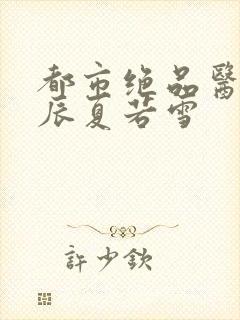 都市绝品醫
辰夏若雪
許少欽